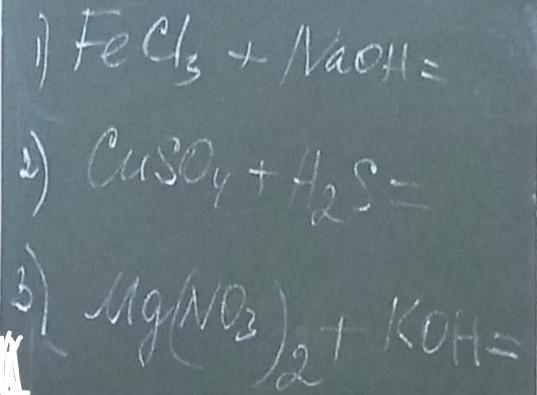 1) FeCl₃ + NaOH =
2) CuSO₄ + H₂S =
3) Mg(NO₃)₂ + KOH =